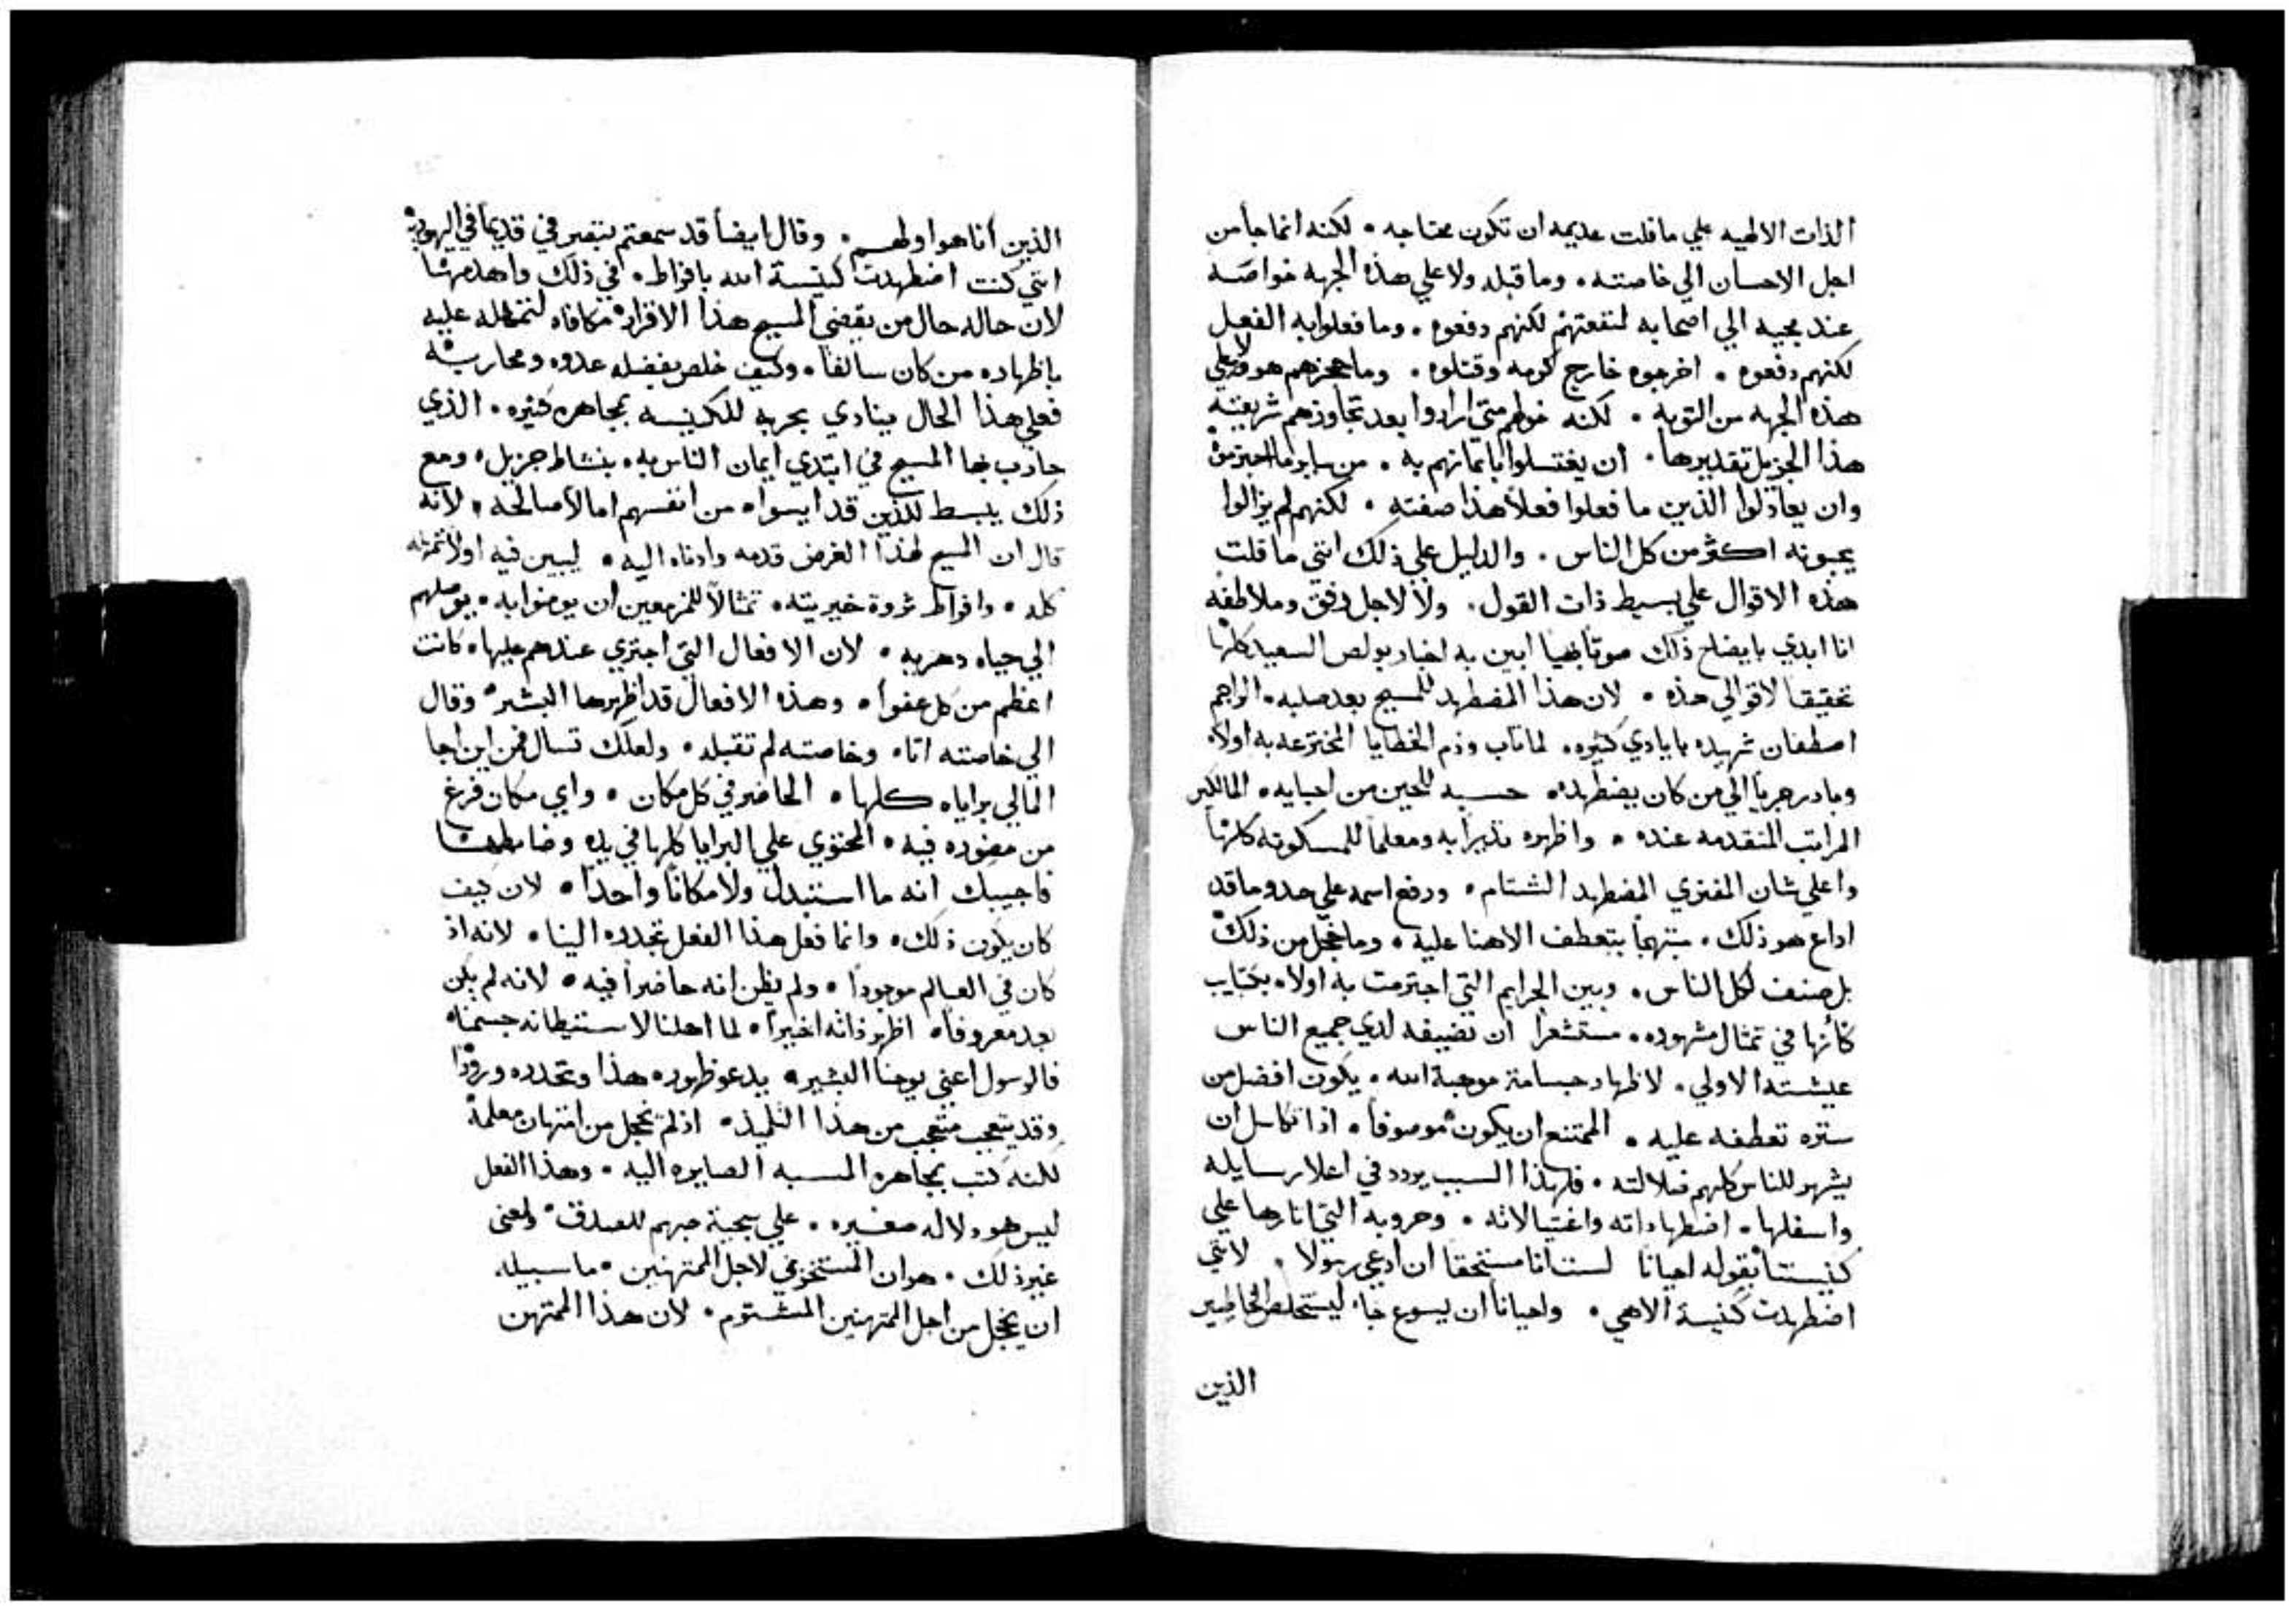 الذات الالهيه علي ما قلت عديمه ان تكون محتاجه • لكنه انما جا من
اجل الاحسان الي خاصته • وما قبله ولا علي هذه الجهه خواصه
عند مجيه الي اصحابه لنفعتهم لكنهم دفعوه • وما فعلوا به الفعل
لكنهم دفعوه • اخرجوه خارج كرمه وقتلوه • وما حجزهم هو ولا علي
هذه الجهه من التوبه • لكنه خولهم متي ارادوا بعد تجاوزهم شريعته
هذا الجزيل تقديرها • ان يغتسلوا بايمانهم به • من ساير ما اجترموه
وان يعادلوا الذين ما فعلوا فعلاً هذا صفته • لكنهم لم يزالوا
يحبونه اكثر من كل الناس • والدليل علي ذلك انني ما قلت
هذه الاقوال علي بسيط ذات القول • ولا لاجل رفق وملاطفه
انا ابدي بايضاح ذلك صوتاً بهياً ابين به اخبار بولص السعيد كلها
تحقيقا لاقوالي هذه • لان هذا المضطهد للمسيح بعد صلبه • الراجم
اصطفان شهيده بايادي كثيره • لما تاب وذم الخطايا المخترعه به اولاً
وبادر جرياً الي من كان يضطهده • حسبه للحين من احبايه •
المراتب المتقدمه عنده • واظهره نذيراً به ومعلماً للمسكونه كلها
واعلي شان المفتري المضطهد الشتام • ورفع اسمه علي حدو ما قد
اداع هو ذلك • مبتهجاً بتعطف الاهنا عليه • وما خجل من ذلك
بل صنف لكل الناس • وبين الجرايم التي اجترمت به اولاً • بكتايب
كأنها في تمثال مشهوده • مستشعراً ان تضييفه لدي جميع الناس
عيشته الاولي • لاظهار جسامة موهبة الله • يكون افضل من
ستره تعطفه عليه • الممتنع ان يكون موصوفاً • اذا تكاسل ان
يشهر للناس كلهم ضلالته • فلهذا السبب يردد في اعلا رسايله
واسفلها • اضطهاداته واغتيالاته • وحروبه التي اثارها علي
كنيستنا بقوله احيانا لست انا مستحقا ان ادعي رسولا • لانني
اضطهدت كنيسة الاهي • واحياناً ان يسوع جا • ليستخلص الخاطيين
الذين
الذين أنا هو اولهم • وقال ايضاً قد سمعتم بتصرفي قديماً في اليهوديه
انني كنت اضطهدت كنيسة الله بافراط • في ذلك واهدمها
لان حاله حال من يقضي المسيح هذا الاقرار مكافاه لتمهله عليه
باظهاره من كان سالفاً • وكيف خلص بفضله عدوه ومحاربه
فعلي هذا الحال ينادي بحربه للكنيسه بمجاهره كثيره • الذي
حارب بها المسيح في ابتدي ايمان الناس به • بنشاط جزيل • ومع
ذلك يبسط للذين قد ايسواه من انفسهم امالاً صالحه • لانه
قال ان المسيح لهذا الغرض قدمه وادناه اليه • ليبين فيه اولاً تمهله
كله • وافراط ثروة خيريته • تمثالاً للمزمعين ان يومنوا به • يوصلهم
الي حياه دهريه • لان الافعال التي اجتري عندهم عليها • كانت
اعظم من كل عفواً • وهذه الافعال قد اظهرها البشير • وقال
الي خاصته اتا • وخاصته لم تقبله • ولعلك تسال فمن اين جا
المالي براياه كلها • الحاضر في كل مكان • واي مكان فرغ
من حضوره فيه • المحتوي علي البرايا كلها في يده وضابطها
فاجيبك انه ما استبدل ولا مكاناً واحداً • لان كيف
كان يكون ذلك • وانما فعل هذا الفعل بتحدره الينا • لانه اذ
كان في العالم موجوداً • ولم يظن انه حاضراً فيه • لانه لم يكن
بعد معروفاً • اظهر ذاته اخيراً • لما اهلنا لاستنيطانه جسمنا
فالرسول اعني يوحنا البشير • يدعو ظهوره هذا وتحدره وروداً
وقد يتعجب متعجب من هذا التلميذ • اذ لم يخجل من امتهان معلمه
لكنه كتب بمجاهره المسبه الصايره اليه • وهذا الفعل
ليس هو دلاله صغيره • علي سجية حبهم للصدق • ولمعنى
غير ذلك • هو ان المستخزي لاجل الممتهنين • ما سبيله
ان يخجل من اجل الممتهنين المشتوم • لان هذا الممتهن